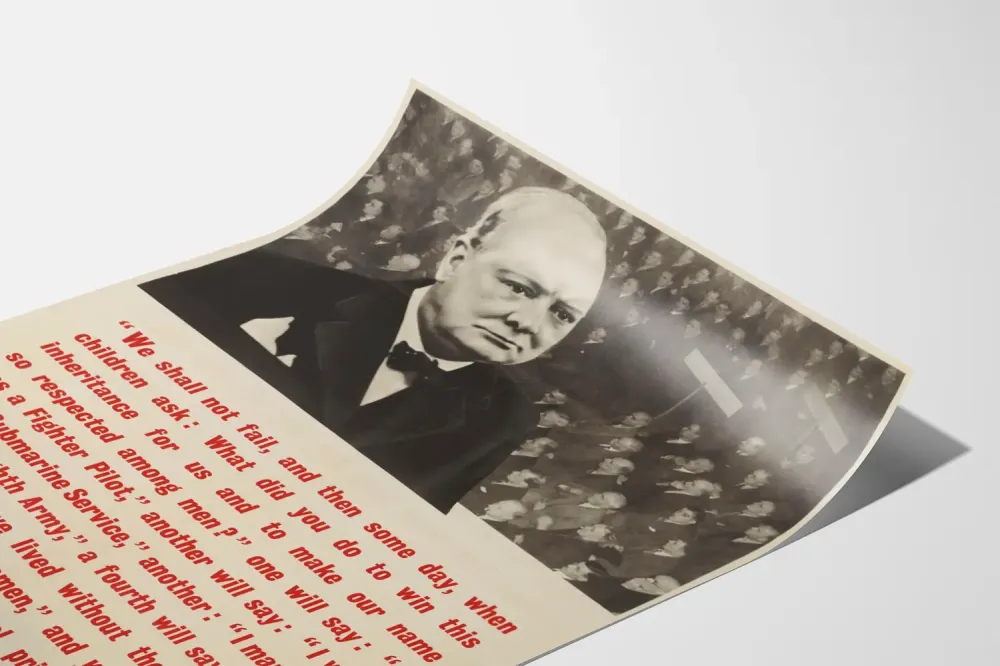 “We shall not fail, and then some day, when
children ask: What did you do to win this
inheritance for us and to make our name
so respected among men?” one will say: “
a Fighter Pilot,” another will say: “I
Submarine Service,” another: “I
Army,” a fourth will say
lived without the
and